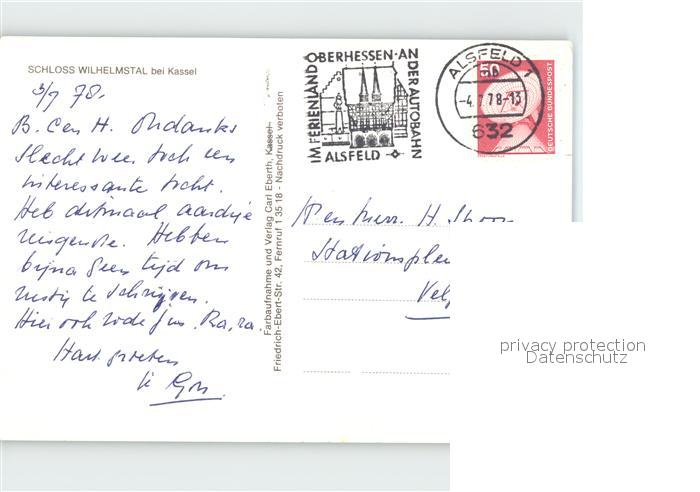 SCHLOSS WILHELMSTAL bei Kassel
3/7 78.
B. C en H. Ondanks
slecht weer toch een
interessante tocht.
Heb ditmaal aardige
reisgenote. Hebben
bijna geen tijd om
rustig te schrijven.
Hier ook rode
Hart. groeten
Farbaufnahme und Verlag Carl Eberth, Kassel
Friedrich-Ebert-Str. 42, Fernruf 1 35 18 - Nachdruck verboten
IM FERIENLAND OBERHESSEN · AN DER AUTOBAHN
ALSFELD
ALSFELD 1
-4.7.78-13
632
50
DEUTSCHE BUNDESPOST
Den Heer. H.
Stationsple
Vel
privacy protection
Datenschutz